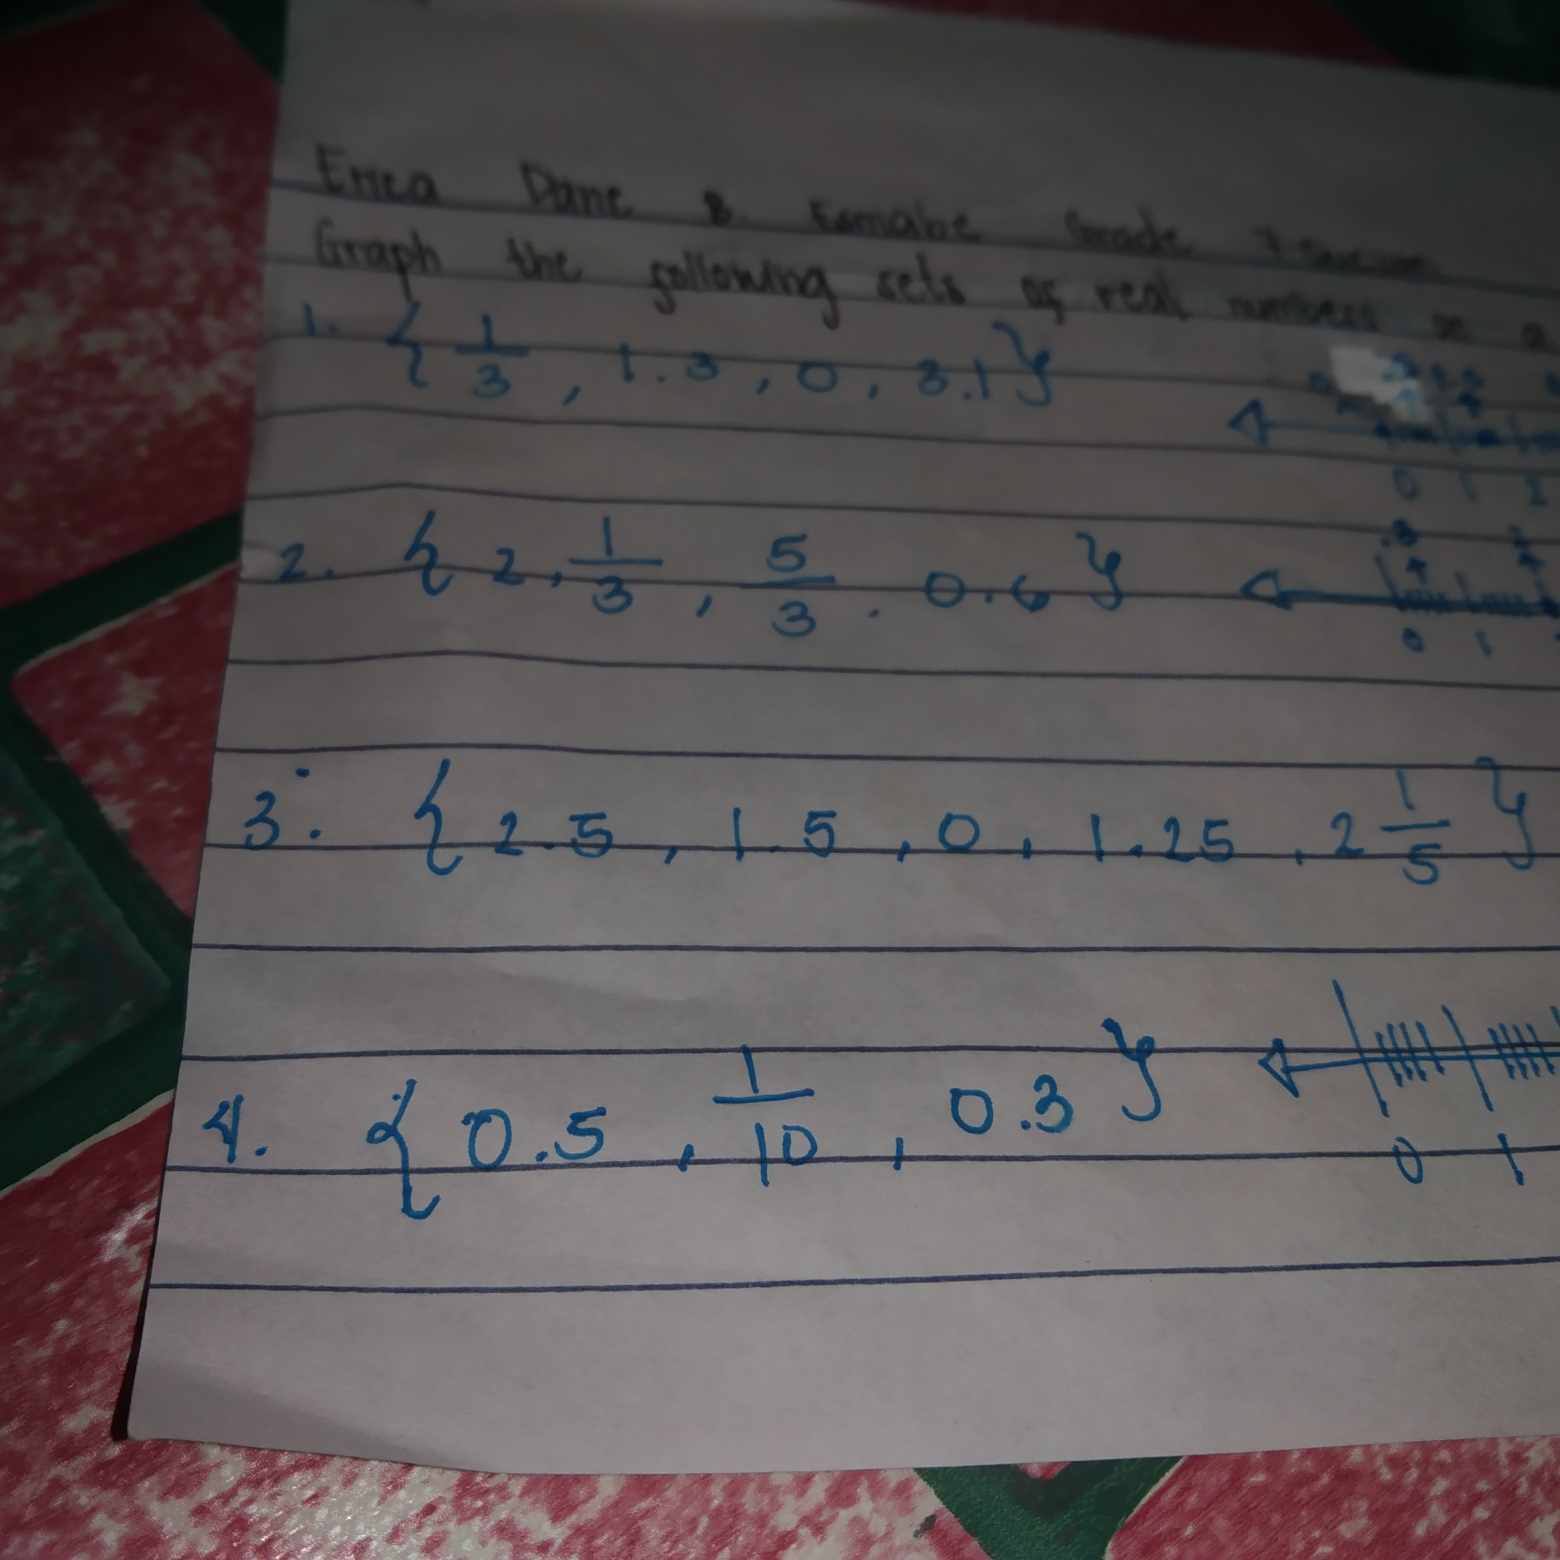 Erica Dane B. Esmabe Grade 7
Graph the following sets of real numbers on a
1. { 1/3 , 1.3 , 0 , 3.1 }
0 1 2
2. { 2 , 1/3 , 5/3 . 0.6 }
0 1
3. { 2.5 , 1.5 , 0 , 1.25 , 2 1/5 }
4. { 0.5 , 1/10 , 0.3 }
0 1